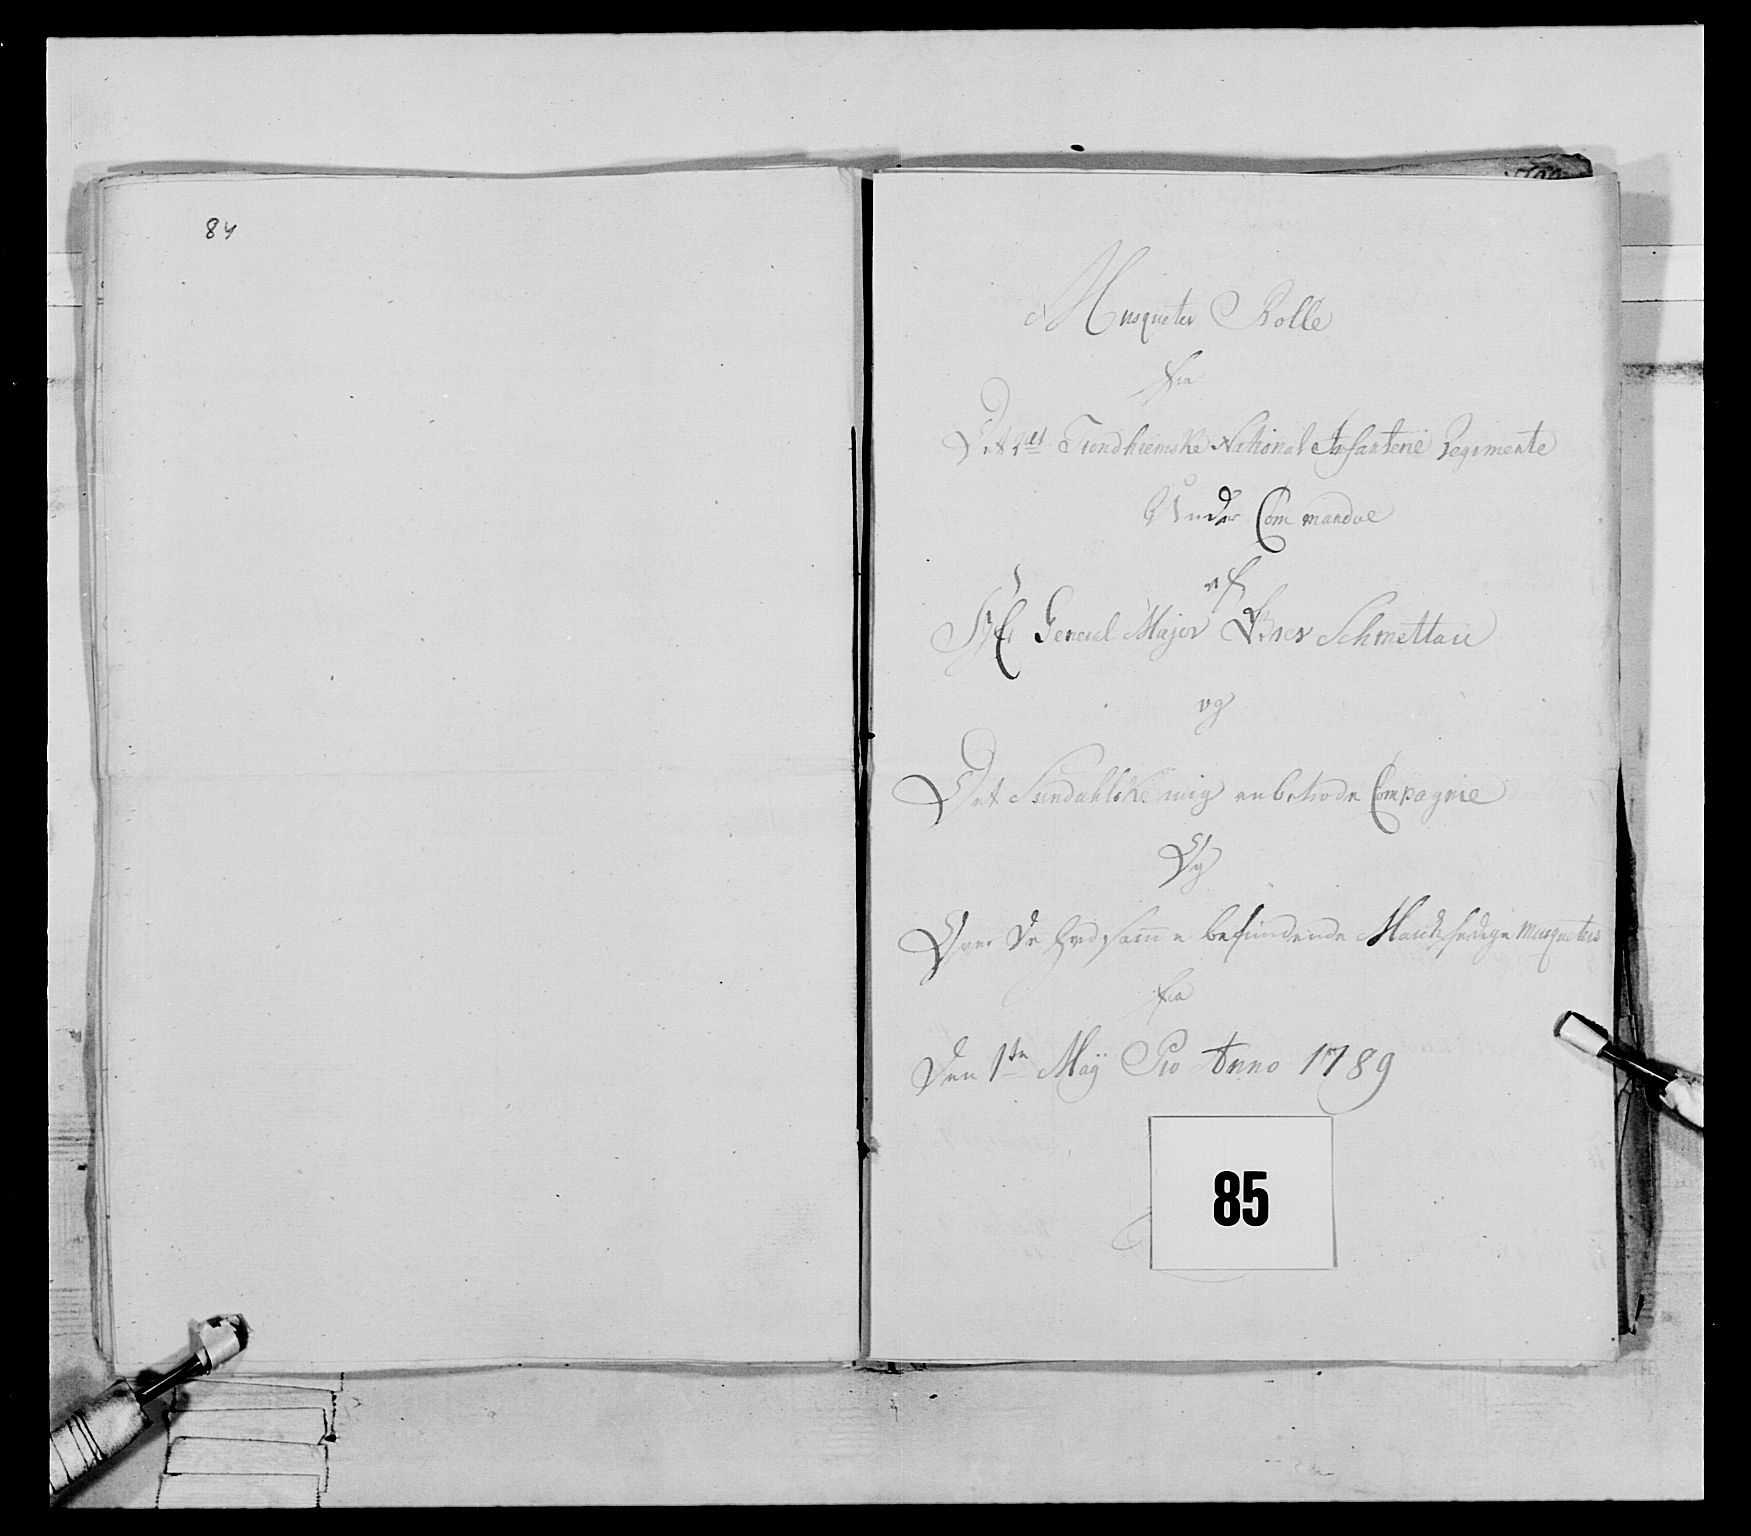 84
Musqueter Rolle
fra
Det 2det Trondhiemske National Infanterie Regimente
Under Commandoe
af
Hr General Major von Schmettau
og
Det Sundahlske mig anbetrode Compagnie
Og
Over de ved samme befindende Mandskerige Musqueters
fra
Den 1te Maÿ Pro Anno 1789
85